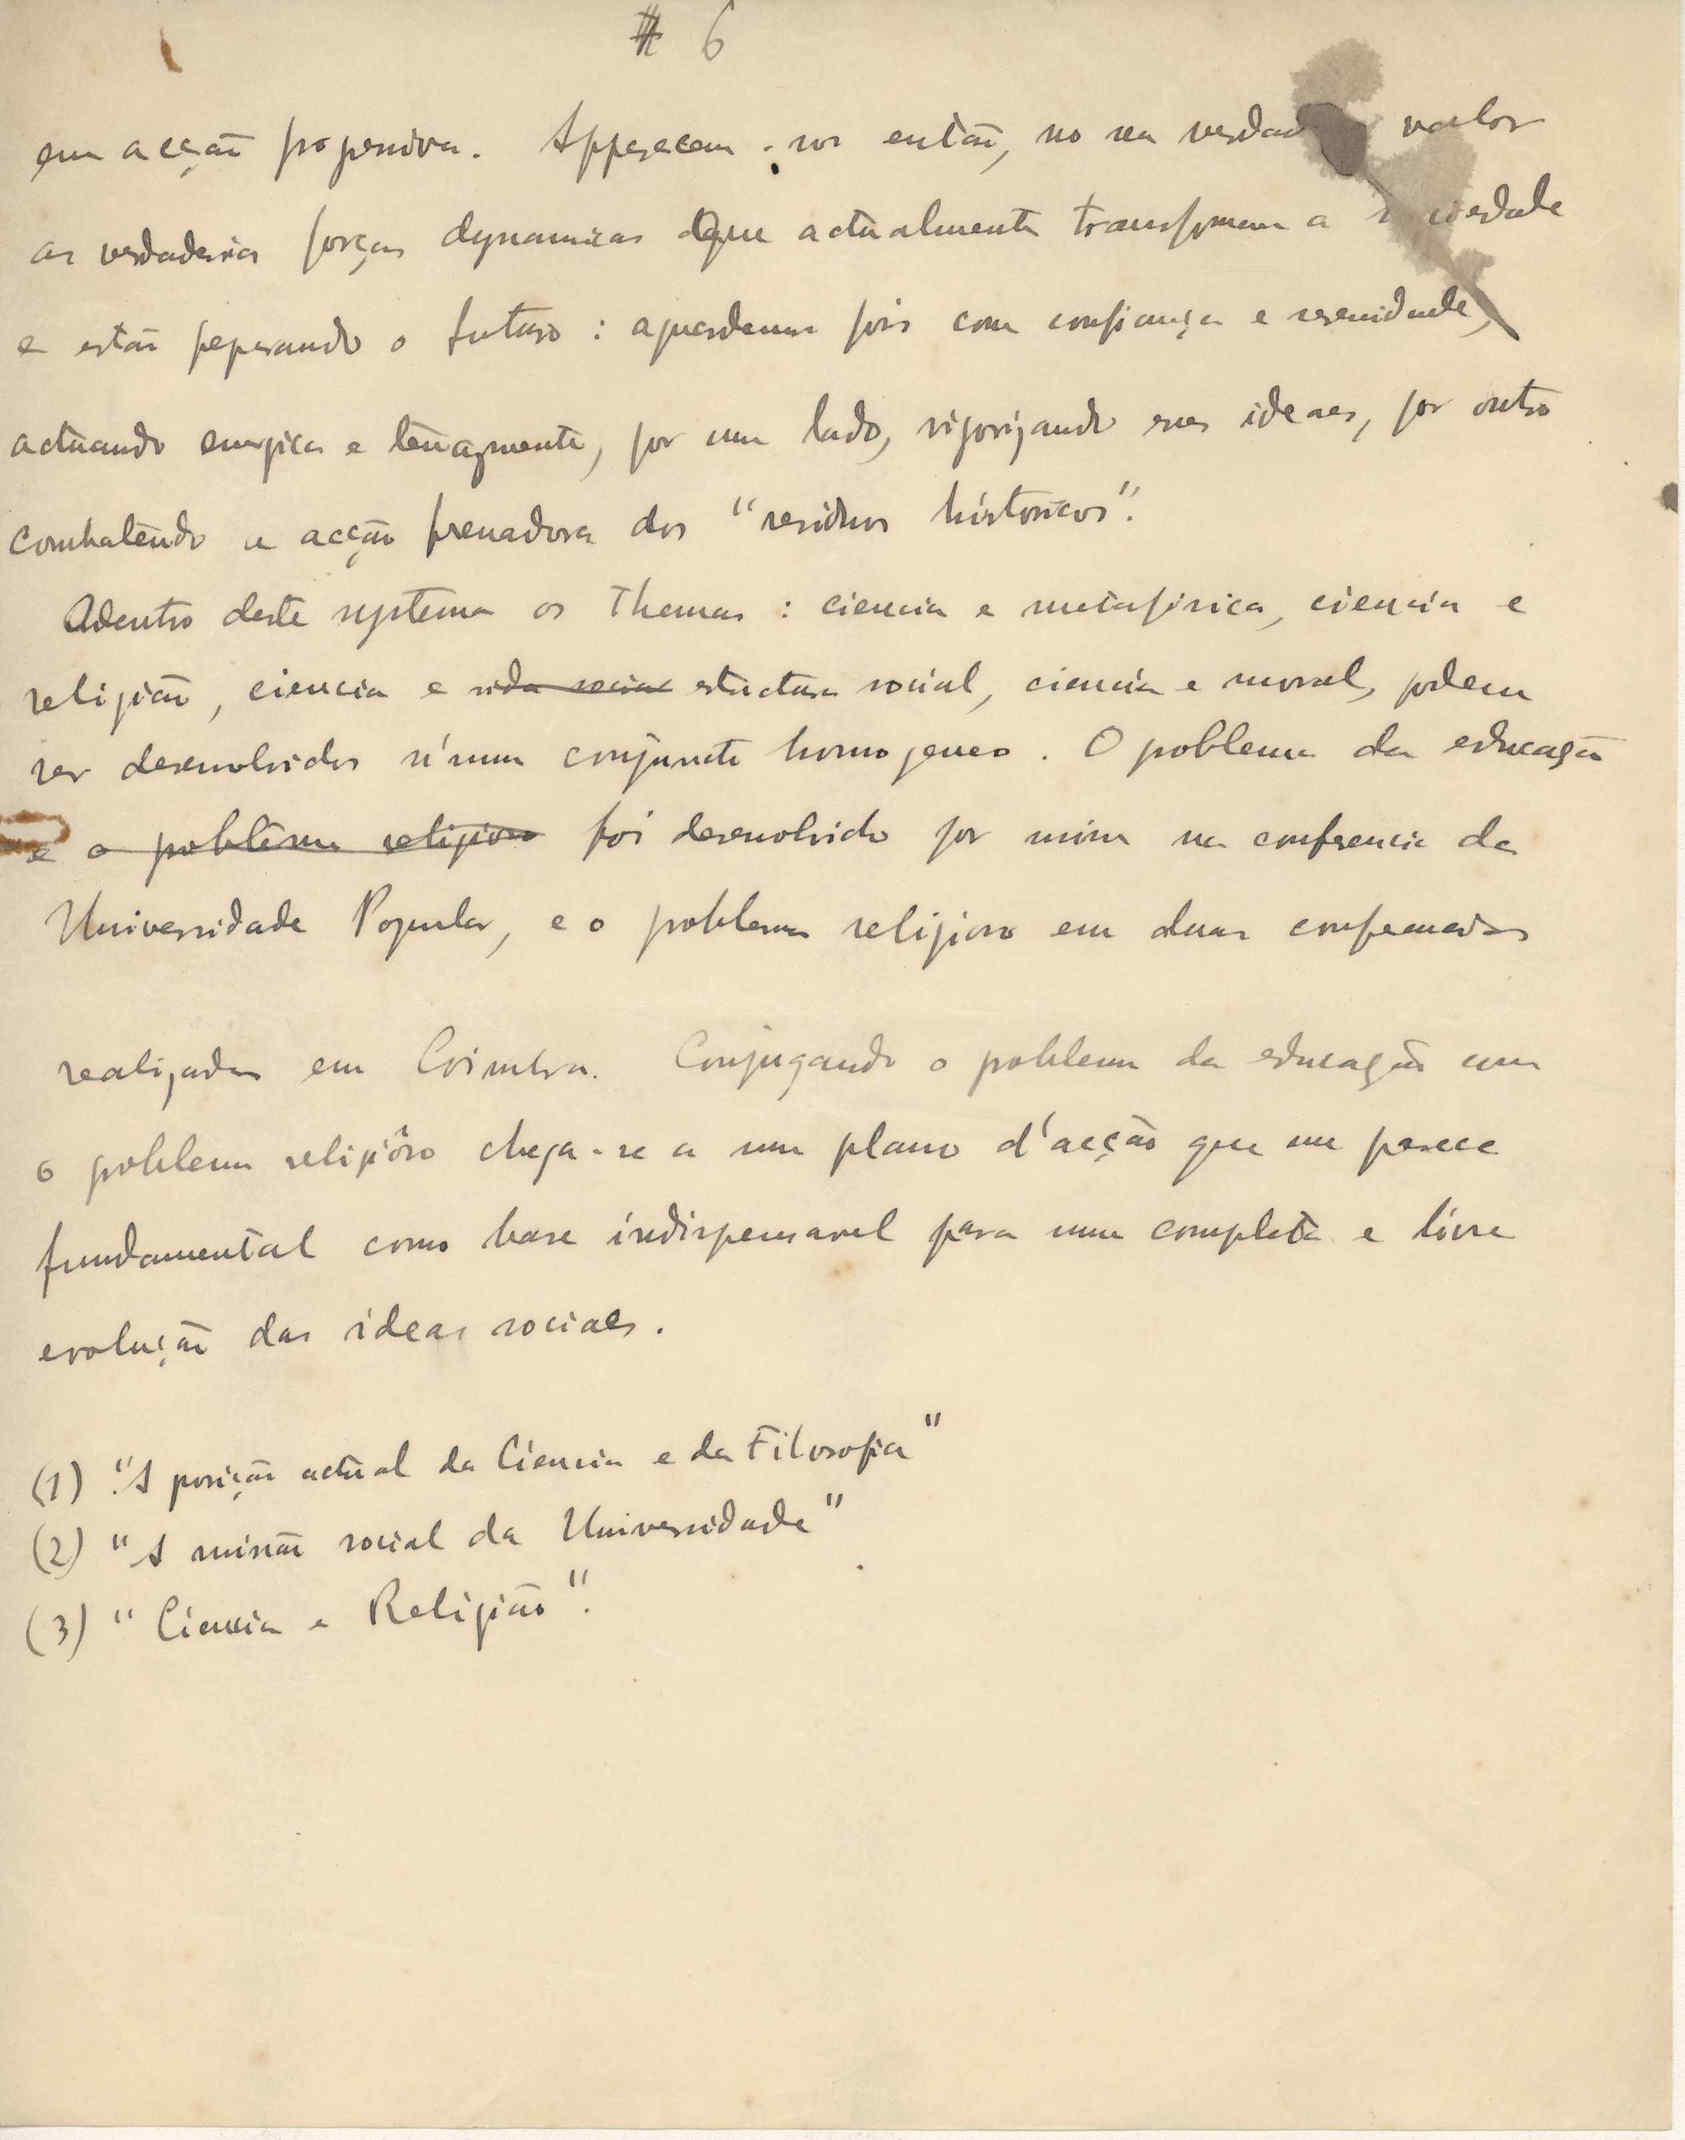 6
em acção progressiva. Apparecem-nos então, no seu verdad valor
as verdadeiras forças dynamicas que actualmente transformam a sociedade
e estão preparando o futuro: aguardemos pois com confiança e serenidade,
actuando energica e tenazmente, por um lado, vigorizando esses ideaes, por outro
combatendo a acção frenadora dos "residuos históricos".
Adentro deste systema os themas: ciencia e metafisica, ciencia e
religião, ciencia e vida social estructura social, ciencia e moral, podem
ser desenvolvidos n'um conjuncto homogeneo. O problema da educação
e o problema religioso foi desenvolvido por mim na conferencia da
Universidade Popular, e o problema religioso em duas conferencias
realizadas em Coimbra. Conjugando o problema da educação com
o problema religiôso chega-se a um plano d'acção que me parece
fundamental como base indispensavel para uma completa e livre
evolução das ideas sociaes.
(1) "A posição actual da Ciencia e da Filosofia"
(2) "A missão social da Universidade"
(3) "Ciencia e Religião".